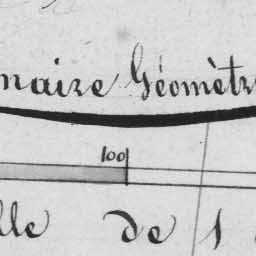 naire Géomètr
100
lle de 1